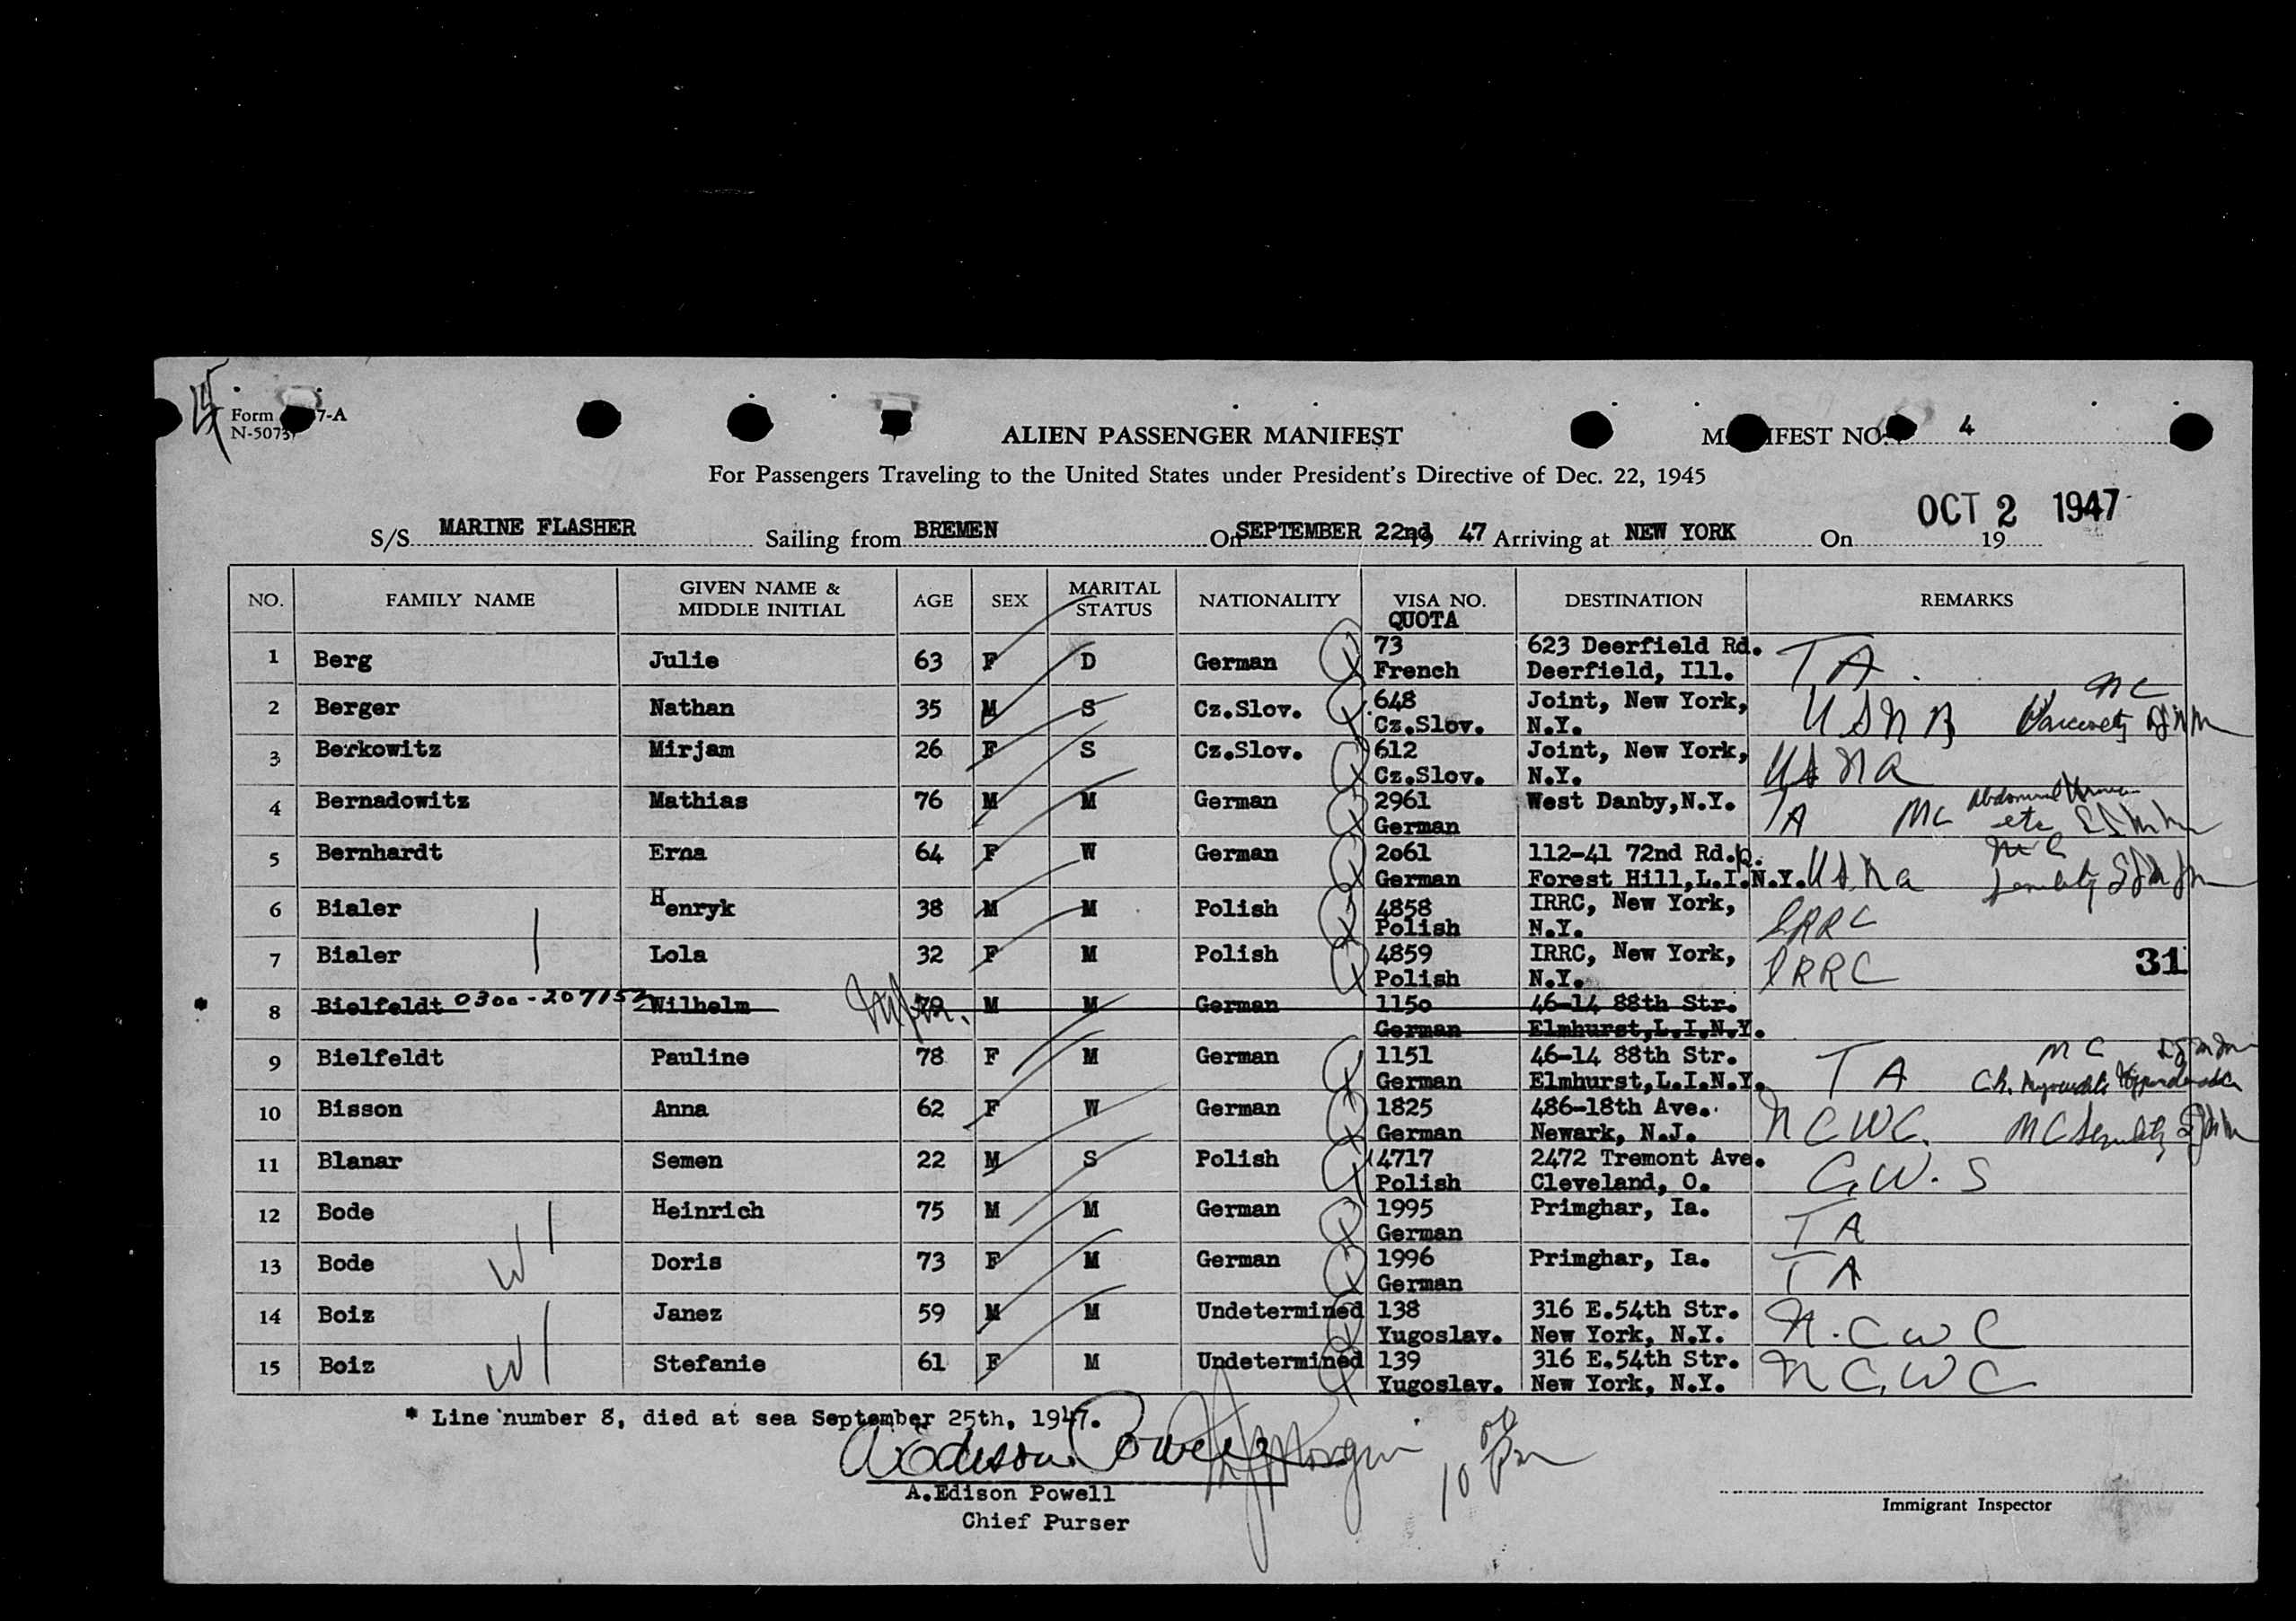 Form 7-A
N-5073
ALIEN PASSENGER MANIFEST
MANIFEST NO. 4
For Passengers Traveling to the United States under President's Directive of Dec. 22, 1945
OCT 2 1947
S/S MARINE FLASHER Sailing from BREMEN On SEPTEMBER 22nd 19 47 Arriving at NEW YORK On 19
NO. FAMILY NAME GIVEN NAME & MIDDLE INITIAL AGE SEX MARITAL STATUS NATIONALITY VISA NO. QUOTA DESTINATION REMARKS
1 Berg Julie 63 F D German 73 French 623 Deerfield Rd. Deerfield, Ill. T A
2 Berger Nathan 35 M S Cz.Slov. 648 Cz.Slov. Joint, New York, N.Y. U S N A MC
3 Berkowitz Mirjam 26 F S Cz.Slov. 612 Cz.Slov. Joint, New York, N.Y. U S N A
4 Bernadowitz Mathias 76 M M German 2961 German West Danby,N.Y. TA MC Abdominal etc
5 Bernhardt Erna 64 F W German 2061 German 112-41 72nd Rd. Forest Hill,L.I.N.Y. U S N A MC Senility
6 Bialer Henryk 38 M M Polish 4858 Polish IRRC, New York, N.Y. IRRC
7 Bialer Lola 32 F M Polish 4859 Polish IRRC, New York, N.Y. IRRC
31
* 8 Bielfeldt 0300-207152 Wilhelm 79 M M German 1150 German 46-14 88th Str. Elmhurst,L.I.N.Y.
9 Bielfeldt Pauline 78 F M German 1151 German 46-14 88th Str. Elmhurst,L.I.N.Y. T A MC
10 Bisson Anna 62 F W German 1825 German 486-18th Ave. Newark, N.J. N C W C. MC Senility
11 Blanar Semen 22 M S Polish 4717 Polish 2472 Tremont Ave. Cleveland, O. C.W.S
12 Bode Heinrich 75 M M German 1995 German Primghar, Ia. T A
13 Bode Doris 73 F M German 1996 German Primghar, Ia. T A
14 Boiz Janez 59 M M Undetermined 138 Yugoslav. 316 E.54th Str. New York, N.Y. N.C W C
15 Boiz Stefanie 61 F M Undetermined 139 Yugoslav. 316 E.54th Str. New York, N.Y. N C.W C
* Line number 8, died at sea September 25th, 1947.
A Edison Powell
10 PM
A.Edison Powell
Chief Purser
Immigrant Inspector